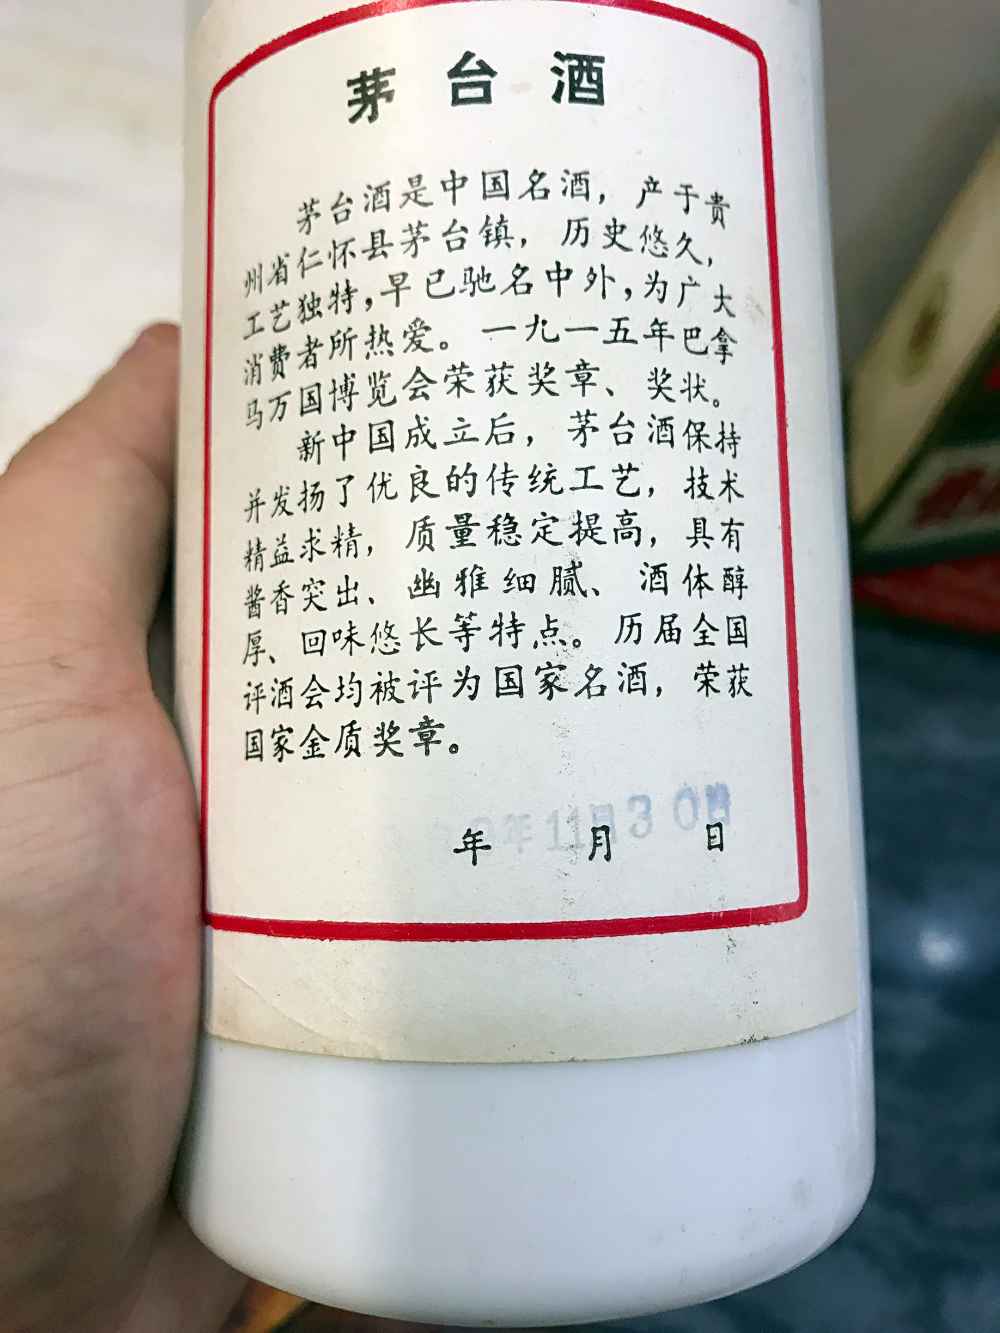 茅台酒
茅台酒是中国名酒，产于贵
州省仁怀县茅台镇，历史悠久，
工艺独特，早已驰名中外，为广大
消费者所热爱。一九一五年巴拿
马万国博览会荣获奖章、奖状。
新中国成立后，茅台酒保持
并发扬了优良的传统工艺，技术
精益求精，质量稳定提高，具有
酱香突出、幽雅细腻、酒体醇
厚、回味悠长等特点。历届全国
评酒会均被评为国家名酒，荣获
国家金质奖章。
年11月30日
年 月 日